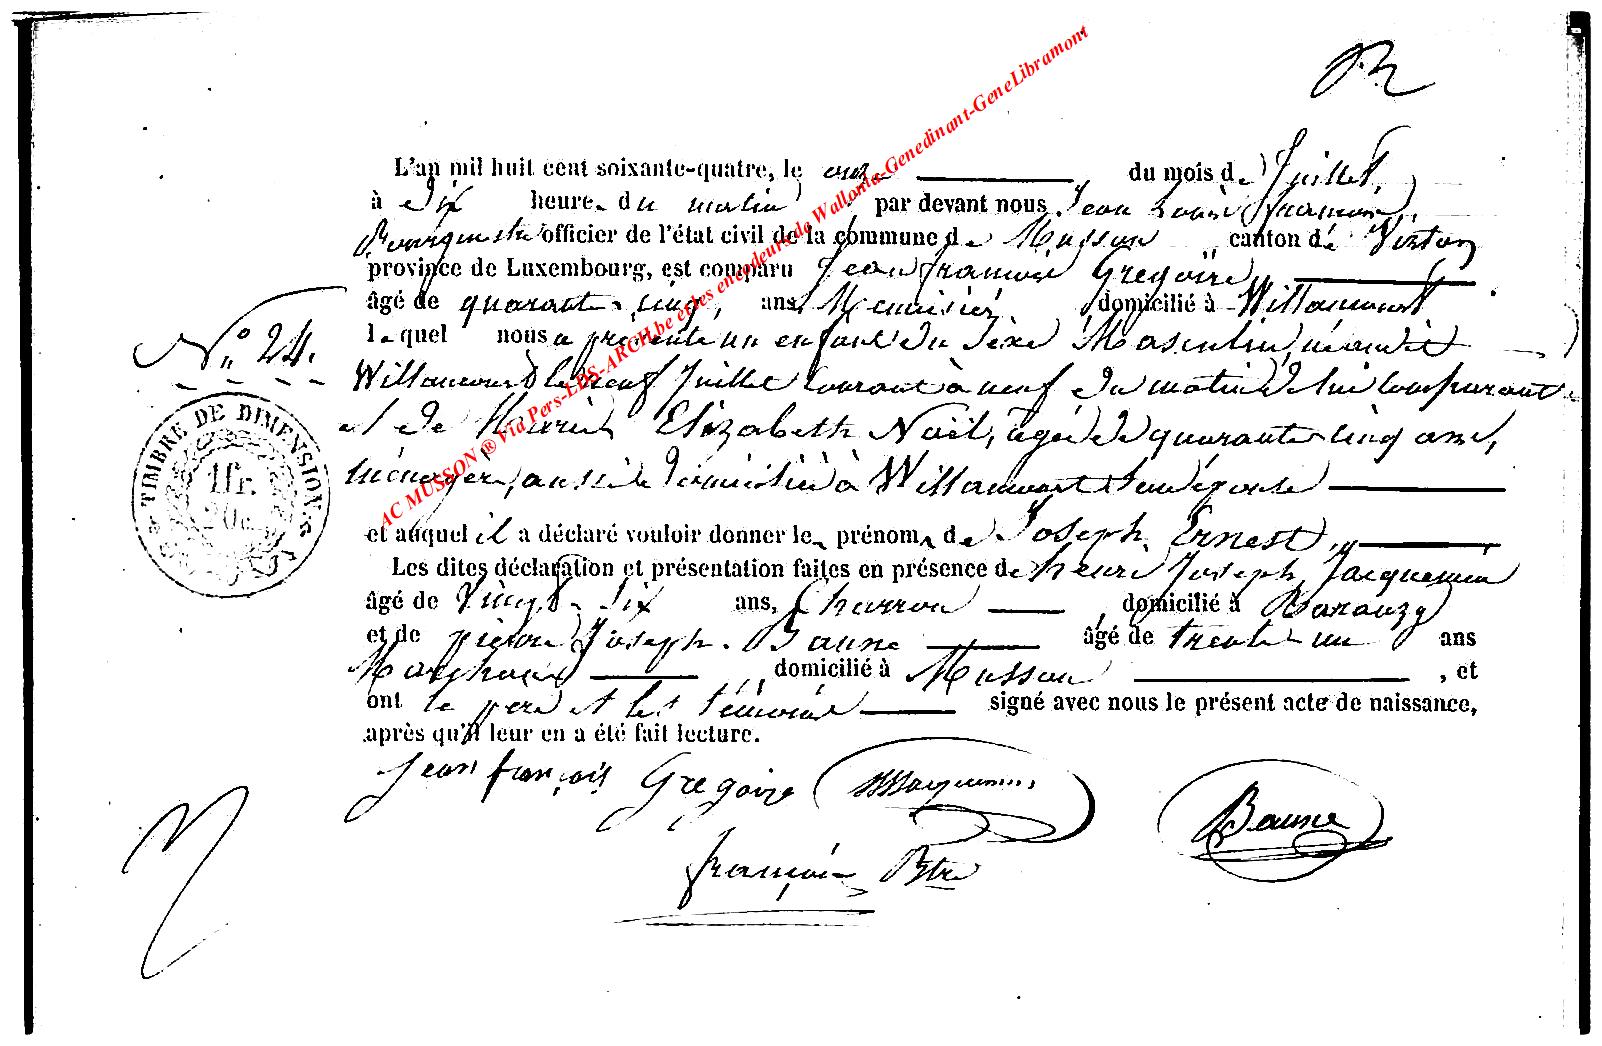 AC MUSSON ® Via Pers-LDS-ARCH.be et les encodeurs de Wallonia-Genedinant-GeneLibramont
L'an mil huit cent soixante-quatre, le onze du mois de Juillet,
à Dix heures du matin, par devant nous Jean Louis François,
Bourgmestre officier de l'état civil de la commune de Musson canton de Virton
province de Luxembourg, est comparu Jean François Gregoire
âgé de quarante-cinq, ans Menuisier domicilié à Willancourt
lequel nous a présenté un enfant du sexe Masculin, né audit
N° 24.
Willancourt le neuf Juillet courant à neuf du matin de lui comparant
et de Marie Elizabeth Noël, agée de quarante cinq ans,
ménagère, aussi domiciliée à Willancourt son épouse
TIMBRE DE DIMENSION
1fr. 20c.
et auquel il a déclaré vouloir donner les prénoms de Joseph Ernest,
Les dites déclaration et présentation faites en présence de henri Joseph Jacquemin
âgé de Vingt-Six ans, Charron domicilié à Baranzy
et de pierre Joseph Baune âgé de trente-un ans
domicilié à Musson, et
ont le père et les témoins signé avec nous le présent acte de naissance,
après qu'il leur en a été fait lecture.
Jean françois Gregoire Jacquemin
Baune
françois Btre